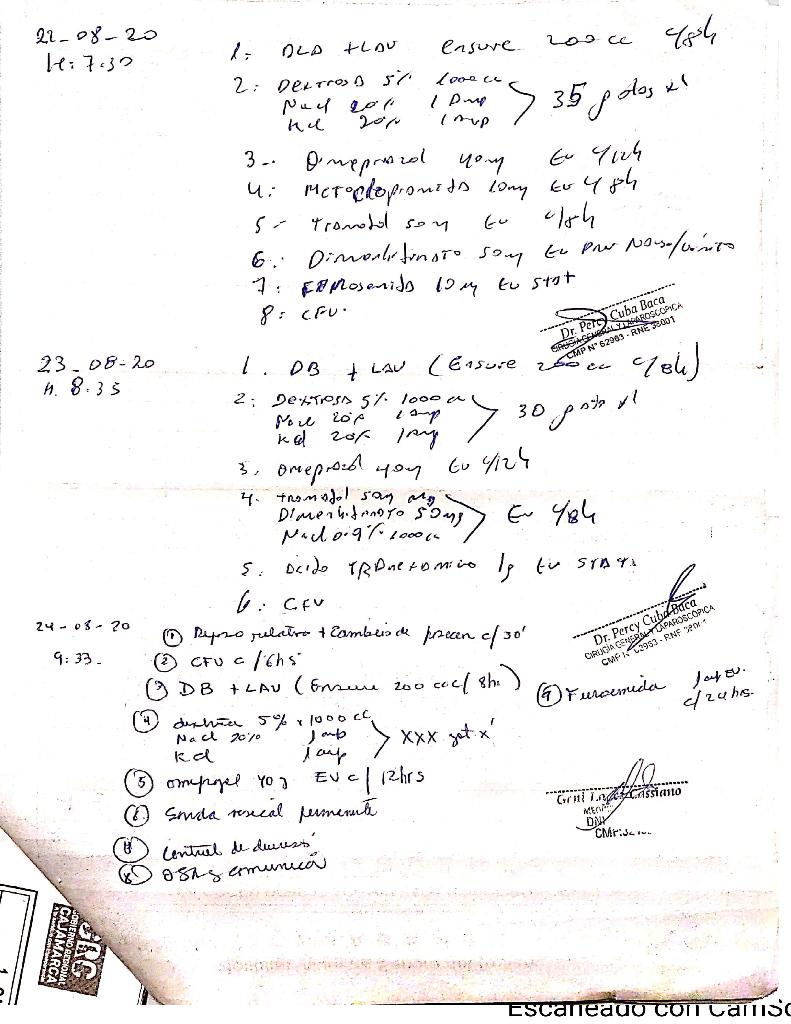 22-08-20
H: 7:30
1: DLA + LAV Ensure 200 cc c/8h
2: Dextrosa 5% 1000 cc
Nacl 20% 1 Amp
Kcl 20% 1 Amp
35 gotas x'
3-. Omeprazol 40mg Ev c/12h
4: Metoclopramida 10mg Ev c/8h
5- Tramadol 50mg Ev c/8h
6.: Dimenhidrinato 50mg Ev PRN Nause/vómito
7: Furosemida 10mg Ev STAT
8: CFV.
Dr. Percy Cuba Baca
CIRUGIA GENERAL Y LAPAROSCOPICA
CMP N° 62983 - RNE 38001
23-08-20
H. 8:35
1. DB + LAV (Ensure 200 cc c/8h)
2: Dextrosa 5% 1000 cc
Nacl 20% 1 amp
Kcl 20% 1 amp
30 gotas x'
3. Omeprazol 40mg Ev c/12h
4. Tramadol 50mg
Dimenhidrinato 50mg
Nacl 0.9% 1000 cc
Ev c/8h
5. Acido TRAnexamico 1g Ev STAT.
6: CFV
Dr. Percy Cuba Baca
CIRUGIA GENERAL Y LAPAROSCOPICA
CMP N° 62983 - RNE
24-08-20
9:33-
① Reposo relativo + Cambios de c/30'
② CFV c/6hs
③ DB + LAV (Ensure 200 cc c/8h)
④ dextrosa 5% x 1000 cc
Nacl 20% 1 amp
Kcl 1 amp
XXX got x'
⑤ omeprazol 40 EV c/12hrs
⑥ Sonda vesical permanente
⑦ Control de diuresis
⑧ OSA y comunicar
⑨ Furosemida 1 amp EV.
c/24hrs.
Cassiano
DNI
CMP:
GRC
GOBIERNO REGIONAL
CAJAMARCA
Escaneado con CamSc